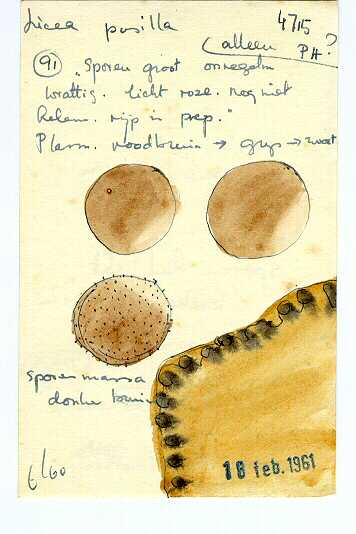 Licea pusilla 4715
(alleen PH?
(91) "Sporen groot onregelm
wrattig. licht roze. nog niet
helem. rijp in prep."
Plasm. roodbruin → grijs → zwart
sporenmassa
donker bruin
6/60
18 feb. 1961